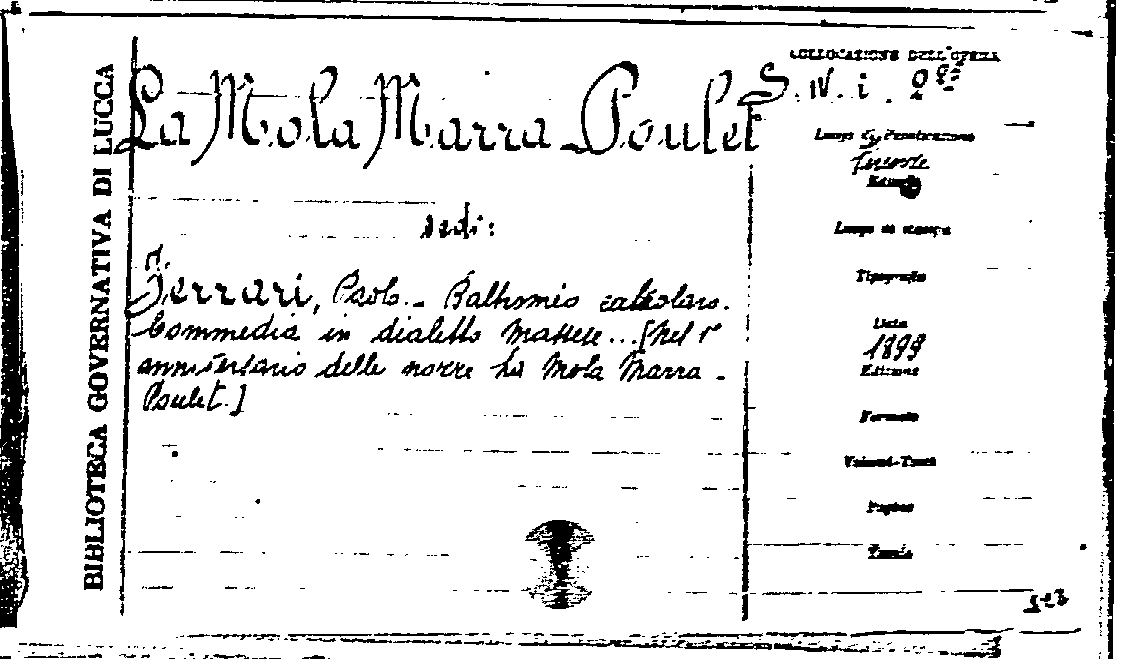 BIBLIOTECA GOVERNATIVA DI LUCCA
La Mola Marra Poulet
vedi:
Ferrari, Paolo. - Baltromio calzolaro.
Commedia in dialetto massese...[Nel 1°
anniversario delle nozze La Mola Marra -
Poulet.]
COLLOCAZIONE DELL'OPERA
S. IV. i.
Luogo di Pubblicazione
Firenze
Luogo di stampa
Tipografia
Data
1899
Edizione
Formato
Volumi-Tomi
Pagine
Tavole